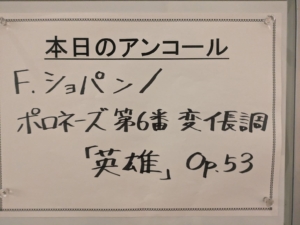 本日のアンコール
F.ショパン/
ポロネーズ 第6番 変イ長調
「英雄」 Op.53